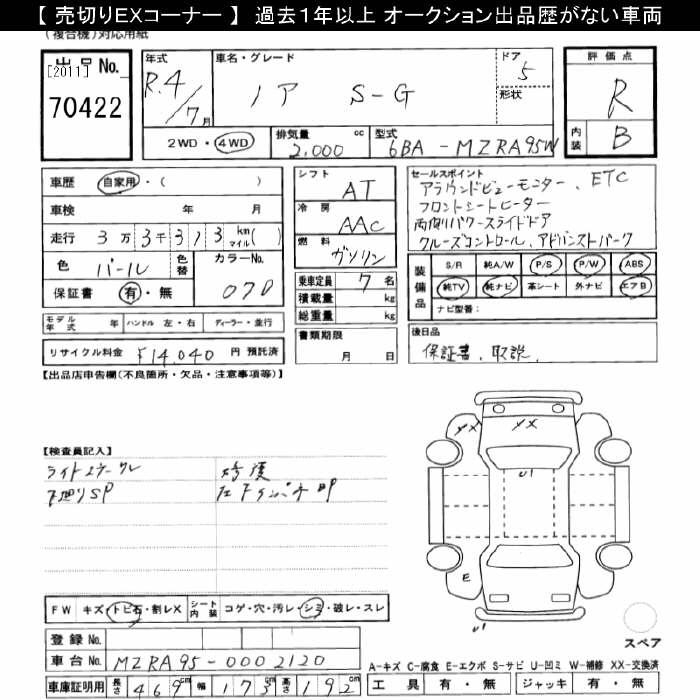 【 売切りEXコーナー 】 過去1年以上 オークション出品歴がない車両
(複合機)対応用紙
出品No.
[2011]
70422
年式
R.4/7月
車名・グレード
ノア S-G
ドア
5
形状
評価点
R
内装
B
2WD・4WD
排気量 cc
2,000
型式
6BA-MZRA95W
車歴 自家用・( )
車検 年 月
走行 3万3千313km マイル( )
色 パール 色替 カラーNo. 070
保証書 有・無
シフト
AT
冷房
AAC
燃料
ガソリン
乗車定員 7名
積載量 kg
総重量 kg
セールスポイント
アラウンドビューモニター、ETC
フロントシートヒーター
両側パワースライドドア
クルーズコントロール、アドバンストパーク
装備品
S/R 純A/W P/S P/W ABS
純TV 純ナビ 革シート 外ナビ エアB
ナビ型番:
モデル年式 年 ハンドル 左・右 ディーラー・並行
リサイクル料金 ¥14,040 円 預託済
書類期限
月 日
後日品
保証書、取説、
【出品店申告欄(不良箇所・欠品・注意事項等)】
【検査員記入】
下廻りSP
XX
XX
U1
E
U1
FW キズ・トビ石・割レX シート内装 コゲ・穴・汚レ・シミ・破レ・スレ
スペア
登録No.
車台No. MZRA95-0002120
A-キズ C-腐食 E-エクボ S-サビ U-凹ミ W-補修 XX-交換済
車庫証明用 長さ 469cm 幅 173cm 高さ 192cm
工具 有・無 ジャッキ 有・無